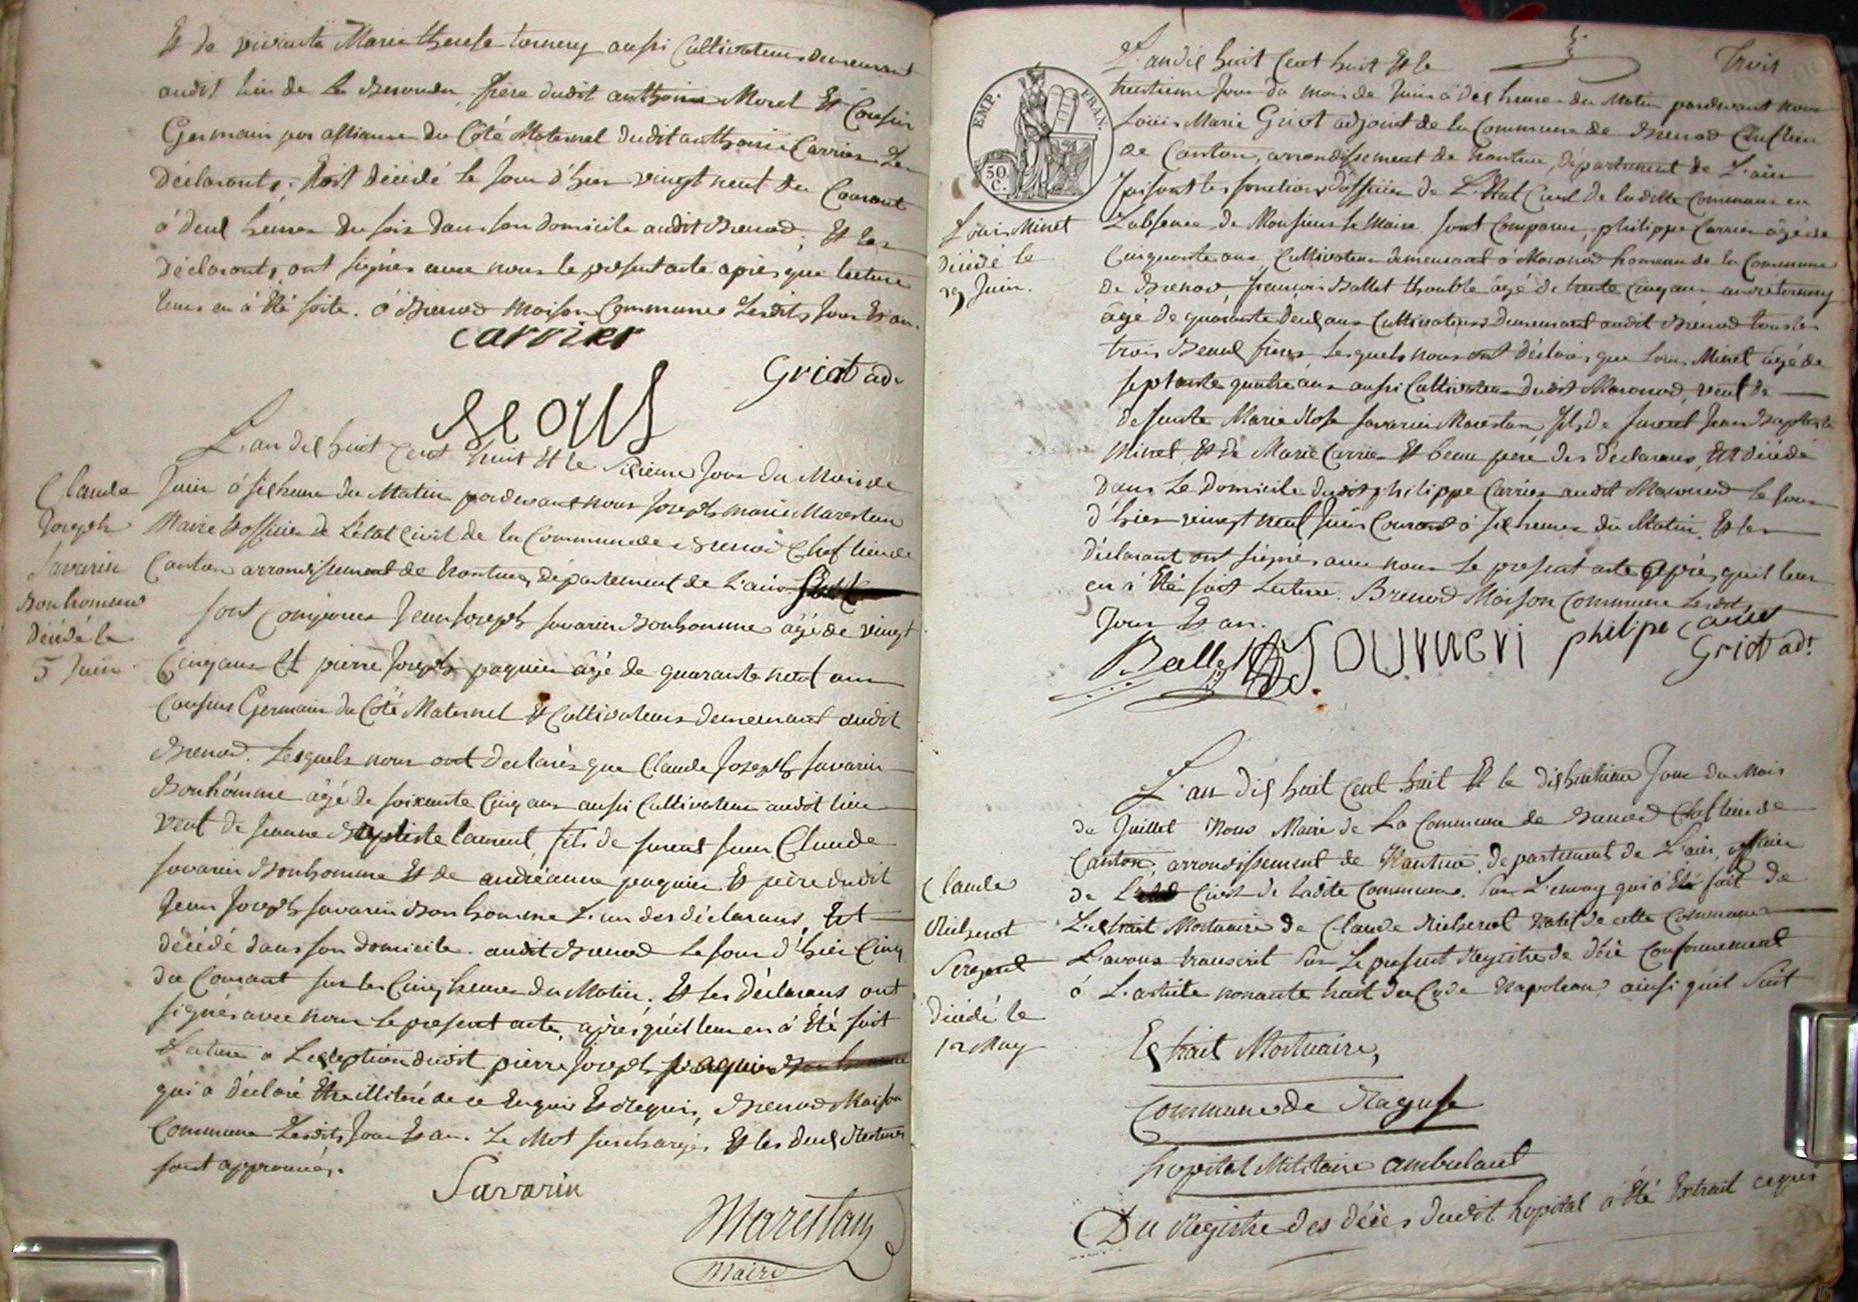 Et de vivante Marie therese tornery aussi Cultivateurs demeurant
audit lieu de Brenod, frère dudit anthoine Morel Et Cousin
Germain par alliance du Côté Maternel dudit anthoine Carrier Les
déclarants. Est décédé le Jour d'hier vingt neuf du Courant
à deux heures du soir dans son domicile audit Brenod, Et les
déclarants ont signés avec nous le present acte après que lecture
leurs en à Eté faite. à Brenod Maison Commune Lesdits Jour Et an.
carrier
Griot adt
L'an dix huit Cent huit Et le Sixieme Jour du Mois de
Juin à six heure du Matin pardevant nous Joseph marie Marestan
Maire Et officier de L'état Civil de la Commune de Brenod Chef lieu de
Canton arrondissement de Nantua, département de L'ain
sont Comparus Jean Joseph Savarin Bonhomme âgé de vingt
Cinq ans Et pierre Joseph paquier âgé de quarante neuf ans
Cousins Germain du Côté Maternel Et Cultivateurs demeurant audit
Brenod. Lesquels nous ont déclarés que Claude Joseph Savarin
Bonhomme âgé de soixante Cinq ans aussi Cultivateur audit lieu
veuf de Jeanne Baptiste laurent fils de furent Jean Claude
Savarin Bonhomme Et de andréanne paquier Et père dudit
Jean Joseph Savarin Bonhomme L'un des déclarans, Est
décédé dans son domicile audit Brenod le Jour d'hier Cinq
du Courant sur les Cinq heures du Matin. Et les déclarans ont
signés avec nous le present acte, après qu'il leur en à Eté fait
Lecture a L'exception dudit pierre Joseph paquier
qui a déclaré Etre illitéré de ce Enquis Et Requis, Brenod Maison
Commune Lesdits Jour Et an. Le Mot surchargés Et les deux Ratures
sont approuvés.
Savarin
Marestan
Maire
Claude
Joseph
Savarin
Bonhomme
Décédé le
5 Juin
EMP. FRAN.
50 C.
Trois
L'an dix huit Cent huit Et le
trentieme Jour du mois de Juin à dix heures du Matin pardevant nous
Louis Marie Griot adjoint de la Commune de Brenod Chef lieu
de Canton, arrondissement de Nantua, département de L'ain
faisant les fonctions d'officier de L'Etat Civil de laditte Commune en
L'absence de Monsieur le Maire sont Comparus, philippe Carrier âgé de
Cinquante ans Cultivateur demeurant à Macconod hameau de la Commune
de Brenod, françois Ballet thouble âgé de trente Cinq ans, andré tornery
âgé de quarante deux ans Cultivateurs demeurant audit Brenod tous les
trois Beaux frères Lesquels nous ont déclarés que Louis Minet âgé de
septante quatre ans aussi Cultivateur dudit Macconod, veuf de
defunte Marie Rose Savarin Marestan fils de furent Jean Baptiste
Minet, Et de Marie Carrier Et beau père des déclarans, Est décédé
dans Le Domicile dudit philippe Carrier audit Macconod le Jour
d'hier vingt neuf Juin Courant à six heures du Matin. Et les
déclarant ont signés avec nous le present acte après qu'il leur
en à Eté fait Lecture. Brenod Maison Commune Lesdits
Jour Et an.
Ballet tourneri philipe carrier
Griot adt
Louis Minet
décédé le
29 Juin.
L'an dix huit Cent huit Et le dix huitieme Jour du Mois
de Juillet Nous Maire de La Commune de Brenod Chef lieu de
Canton, arrondissement de Nantua, département de L'ain, officier
de L'etat Civil de ladite Commune. Sur L'envoy qui à Eté fait de
L'Extrait Mortuaire de Claude Richerot Natif de cette Commune
L'avons transcrit sur Le présent Registre de décé Conformement
à L'article nonante huit du Code Napoleon, ainsi qu'il suit
Extrait Mortuaire,
Commune de Raguse
hopital Militaire ambulant
Du Registre des décès dudit hopital à Eté Extrait ce qui
Claude
Richerot
Sergent
décédé le
12 May